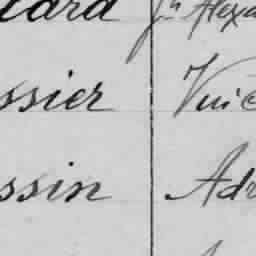 uard Jn Alexa
ssier Vuic
ssin Adr